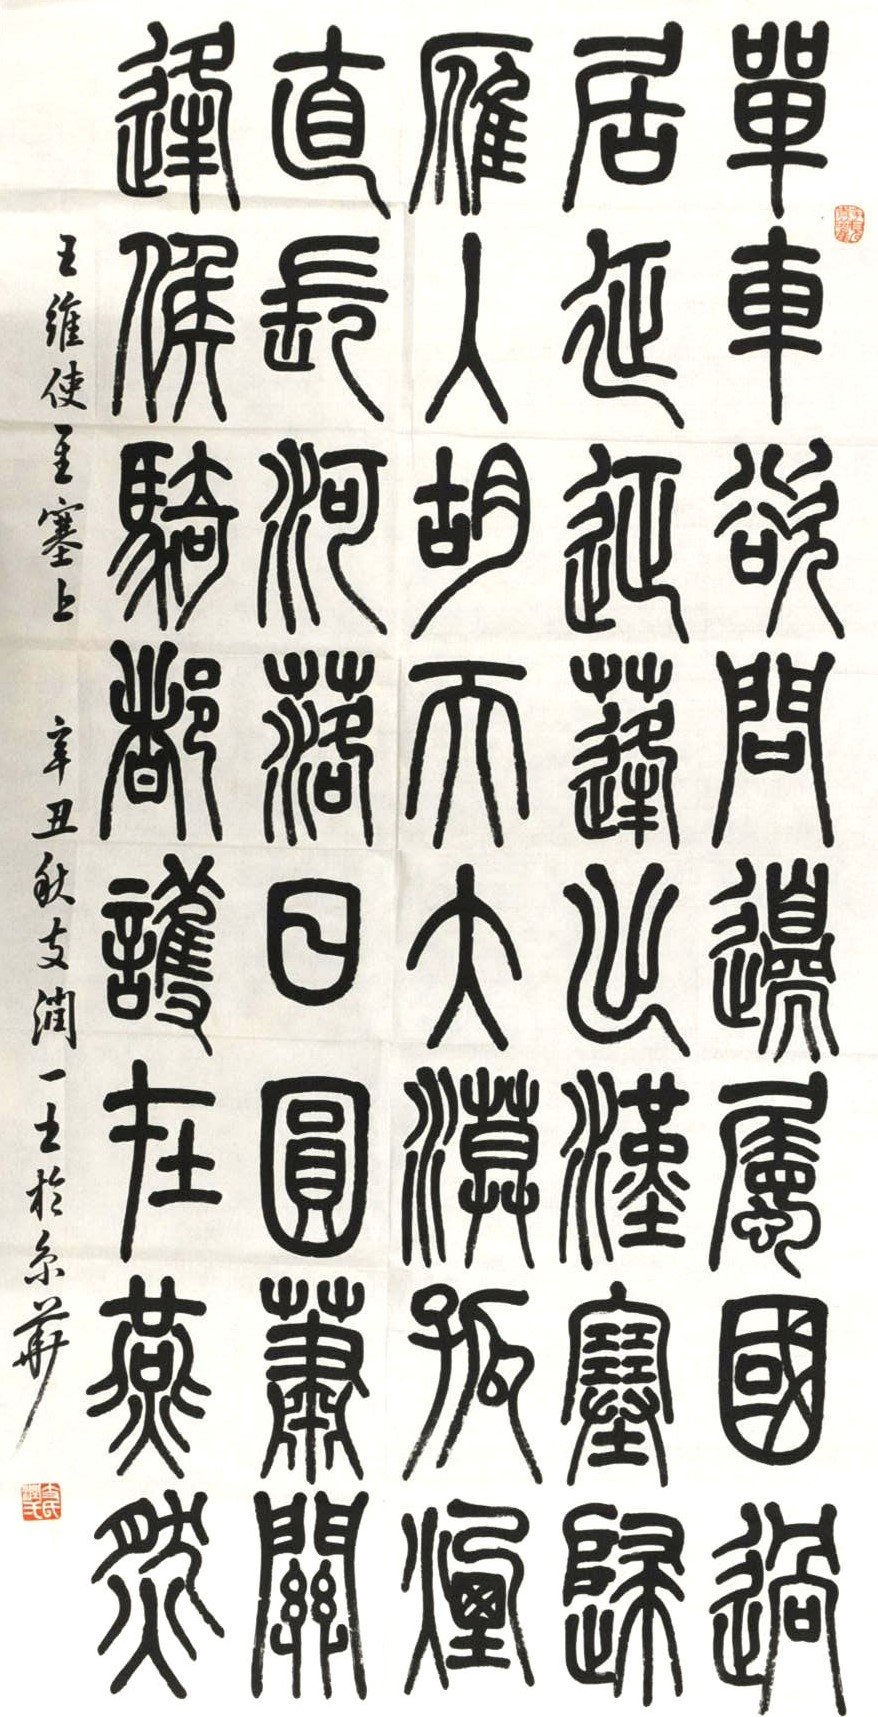 單車欲問邊屬國過
居延征蓬出漢塞歸
雁人胡天大漠孤煙
直長河落日圓蕭關
逢候騎都護在燕然
王維使至塞上 辛丑秋支潤一士於京華